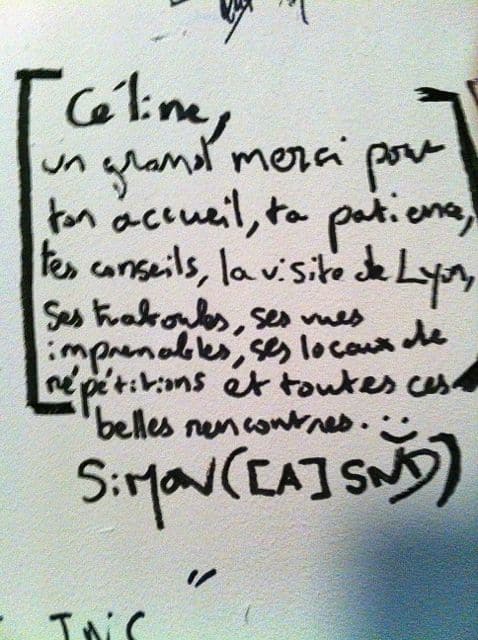 Céline,
un grand merci pour
ton accueil, ta patience,
tes conseils, la visite de Lyon,
ses traboules, ses vues
imprenables, ses locaux de
répétitions et toutes ces
belles rencontres...
SiMON ([A] SND)